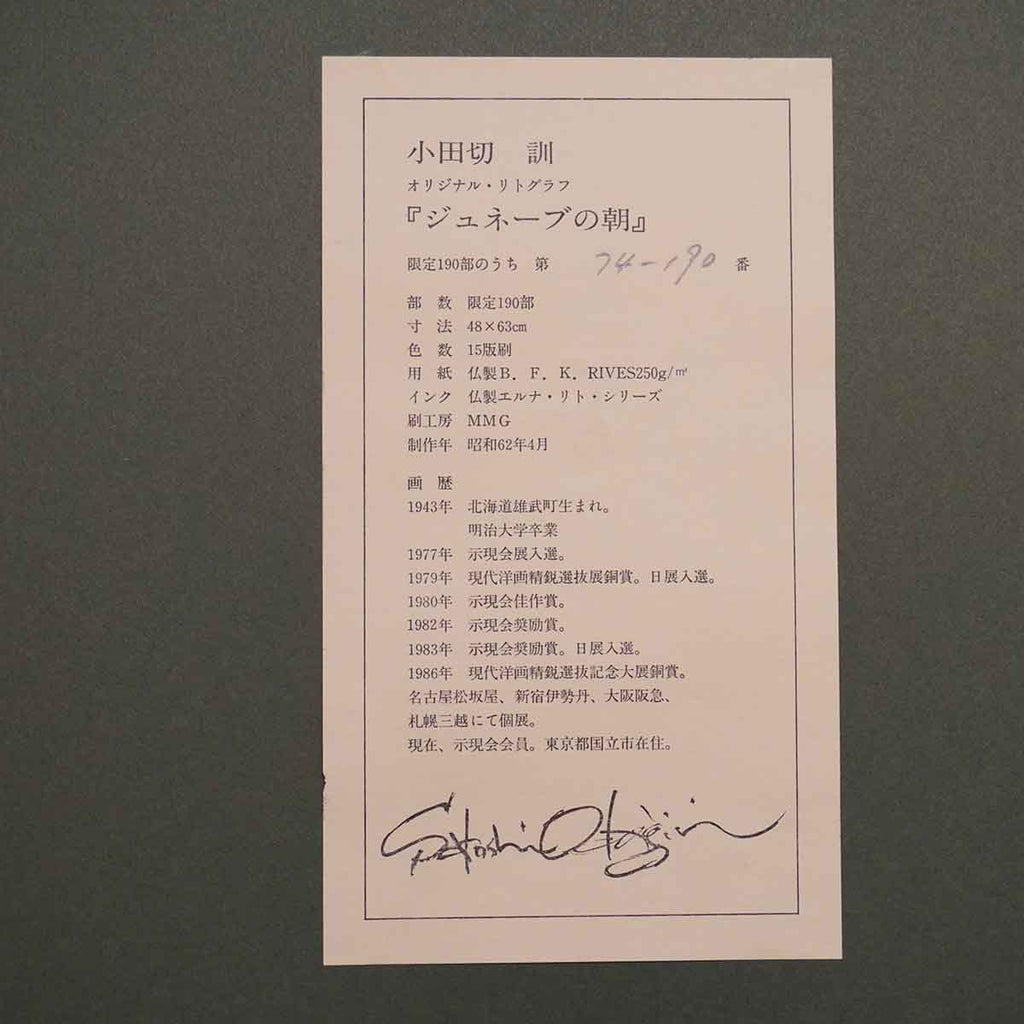 小田切　訓
オリジナル・リトグラフ
『ジュネーブの朝』
限定190部のうち　第　74-190　番
部　数　限定190部
寸　法　48×63cm
色　数　15版刷
用　紙　仏製B．F．K．RIVES250g/㎡
インク　仏製エルナ・リト・シリーズ
刷工房　MMG
制作年　昭和62年4月
画　歴
1943年　北海道雄武町生まれ。
明治大学卒業
1977年　示現会展入選。
1979年　現代洋画精鋭選抜展銅賞。日展入選。
1980年　示現会佳作賞。
1982年　示現会奨励賞。
1983年　示現会奨励賞。日展入選。
1986年　現代洋画精鋭選抜記念大展銅賞。
名古屋松坂屋、新宿伊勢丹、大阪阪急、
札幌三越にて個展。
現在、示現会会員。東京都国立市在住。